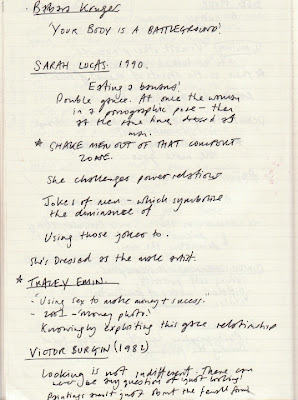 · Barbara Kruger
'YOUR BODY IS A BATTLEGROUND'.
SARAH LUCAS. 1990.
'Eating a banana'.
Double gaze. At once the woman
in a pornographic pose - then
at the same time, dressed as
man.
* SHAKE MEN OUT OF THAT COMFORT
ZONE.
She challenges power relations
Jokes of men - which symbolise
the dominance of
Using those jokes to.
She's Dressed as the male artist.
* TRACEY EMIN.
- "Using sex to make money + success."
- 2001 - 'Money photo'.
Knowingly exploiting this gaze relationship
VICTOR BURGIN (1982)
Looking is not indifferent. There can
never be any question of 'just looking'.
Paintings aren't just about the female form